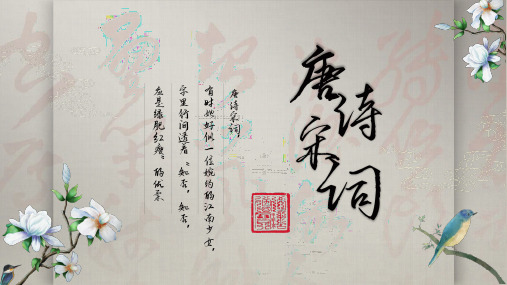 唐诗宋词
唐诗宋词，
有时她好似一位婉约的江南少女，
字里行间透着“知否，知否，
应是绿肥红瘦”的优柔